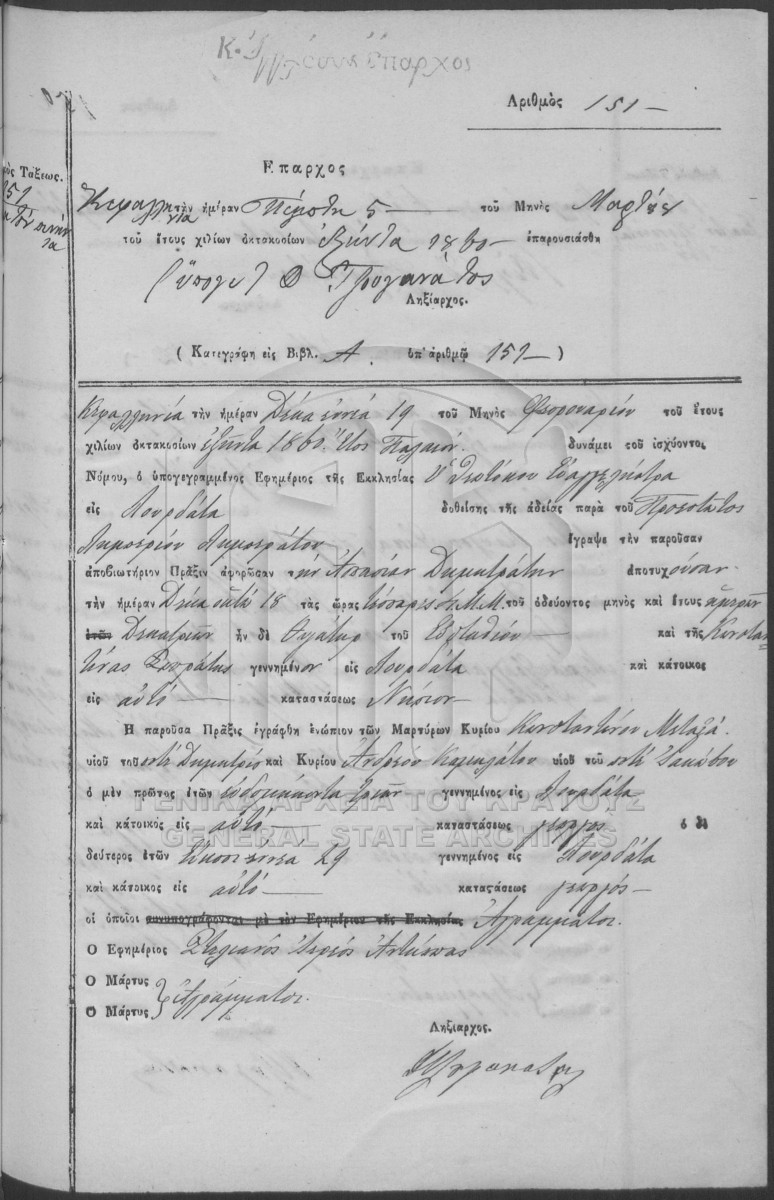 Ἀριθμὸς 151
Ἔπαρχος
μὸς Τάξεως.
Κεφαλληνία τὴν ἡμέραν Πέμπτη 5 τοῦ Μηνὸς Μαρτίου
τοῦ ἔτους χιλίων ὀκτακοσίων ἑξῆντα 1860 ἐπαρουσιάσθη
(ὑπογε)
Ληξίαρχος.
(Κατεγράφη εἰς Βιβλ. Α. ὑπ' ἀριθμῷ 151)
Κεφαλληνία τὴν ἡμέραν Δέκα ἐννέα 19 τοῦ Μηνὸς Φεβρουαρίου τοῦ ἔτους
χιλίων ὀκτακοσίων ἑξῆντα 1860. Ἔτος Παλαιόν. δυνάμει τοῦ ἰσχύοντος
Νόμου, ὁ ὑπογεγραμμένος Ἐφημέριος τῆς Ἐκκλησίας Θεοτόκου Εὐαγγελίστρα
εἰς Λουρδάτα δοθείσης τῆς ἀδείας παρὰ τοῦ Προεστῶτος
ἔγραψε τὴν παροῦσαν
ἀποβιωτήριον Πρᾶξιν ἀφορῶσαν τὴν Ἀσπασίαν ἀποτυχοῦσαν
τὴν ἡμέραν Δέκα ὀκτὼ 18 τὰς ὥρας τέσσαρες Μ.Μ. τοῦ ὁδεύοντος μηνὸς καὶ ἔτους ἡμερῶν
ἐτῶν Δεκατριῶν ἦν δὲ θυγάτηρ τοῦ Εὐσταθίου καὶ τῆς Κωνσταν
τίνας γεννημένον εἰς Λουρδάτα καὶ κάτοικος
εἰς αὐτό καταστάσεως Νήπιον
Ἡ παροῦσα Πρᾶξις ἐγράφθη ἐνώπιον τῶν Μαρτύρων Κυρίου Κωνσταντίνου Μεταξᾶ
υἱοῦ τοῦ ποτὲ Δημητρίου καὶ Κυρίου Ἀνδρέου υἱοῦ τοῦ ποτὲ Ἰακώβου
ὁ μὲν πρῶτος ἐτῶν ἑβδομήκοντα τριῶν γεννημένος εἰς Λουρδάτα
καὶ κάτοικος εἰς αὐτό καταστάσεως γεωργός ὁ δὲ
δεύτερος ἐτῶν Εἴκοσι ἐννέα 29 γεννημένος εἰς Λουρδάτα
καὶ κάτοικος εἰς αὐτό καταστάσεως γεωργός
οἱ ὁποῖοι συνυπογράφονται μὲ τὸν Ἐφημέριον τῆς Ἐκκλησίας Ἀγράμματοι.
Ὁ Ἐφημέριος Στυλιανός Ἱερεύς
Ὁ Μάρτυς
Ὁ Μάρτυς } Ἀγράμματοι.
Ληξίαρχος.
ΓΕΝΙΚΑ ΑΡΧΕΙΑ ΤΟΥ ΚΡΑΤΟΥΣ
GENERAL STATE ARCHIVES